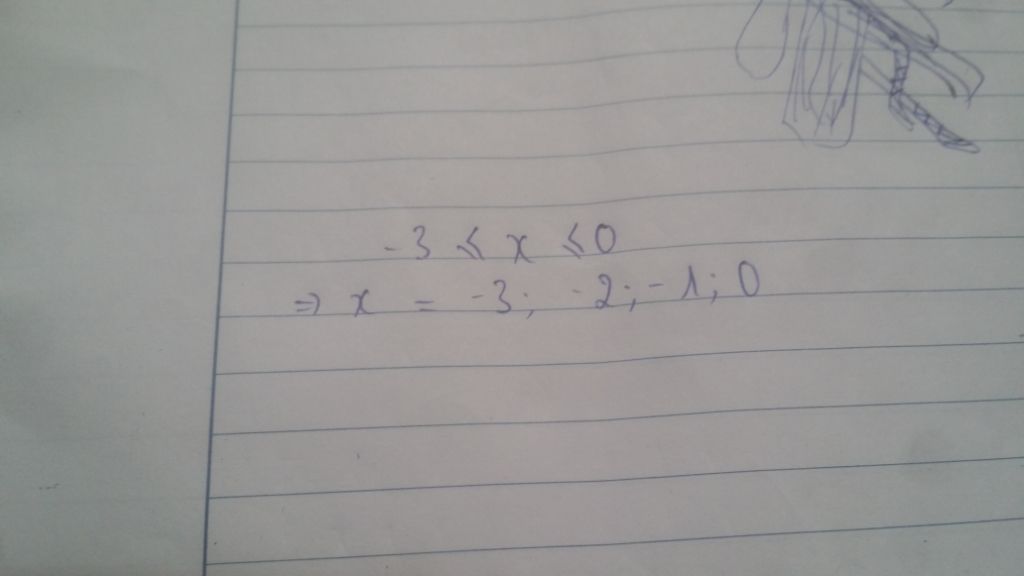 -3 ⩽ x ⩽ 0
⇒ x = -3; -2; -1; 0